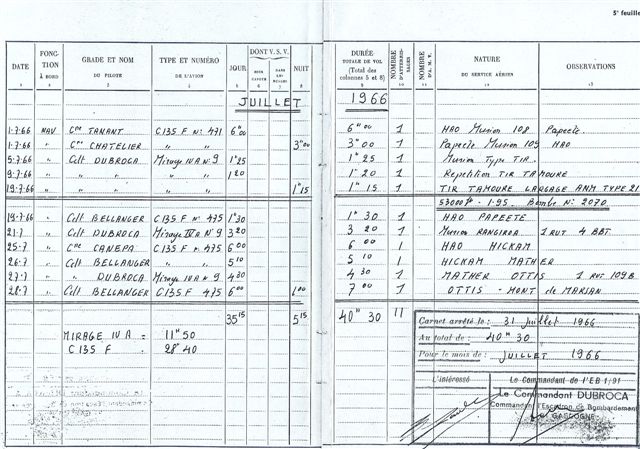 5e feuille
DATE FONCTION À BORD GRADE ET NOM DU PILOTE TYPE ET NUMÉRO DE L'AVION JOUR DONT V.S.V. NUIT DURÉE TOTALE DE VOL (Total des colonnes 5 et 8) NOMBRE D'ATTERRISSAGES NOMBRE D'A.M.V. NATURE DU SERVICE AÉRIEN OBSERVATIONS
JUILLET 1966
1-7-66 NAV Cne TANANT C135 F N° 471 6"00 6"00 1 HAO Mission 108 Papeete
1-7-66 " Cne CHATELIER " " 3"00 3"00 1 Papeete Mission 109 HAO
5-7-66 " Cdt DUBROCA Mirage IV A N° 9 1"25 1"25 1 Mission Type TIR
9-7-66 " " " " " 1 20 1"20 1 Repetition TIR TAMOURE
19-7-66 " " " " " 1"15 1"15 1 TIR TAMOURE LARGAGE ANM TYPE 21
53000 1.95 Bombe N° 2070
19-7-66 " Cdt BELLANGER C135 F N° 475 1"30 1"30 1 HAO PAPEETE
21-7 " Cdt DUBROCA Mirage IV A N° 9 3 20 3 20 1 Mission RANGIROA 1 RUT 4 BBT
25-7 " Cne CANEPA C135 F N° 475 6 00 6 00 1 HAO HICKAM
26-7 " Cdt BELLANGER " " 5 10 5 10 1 HICKAM MATHER
27-7 " " DUBROCA Mirage IV A N° 9 4 30 4 30 1 MATHER OTTIS 1 RUT 109B
28-7 " Cdt BELLANGER C135 F 475 6"00 1 00 7 00 1 OTTIS - MONT de MARSAN
35 15 5 15 40" 30 11
MIRAGE IV A = 11" 50
C 135 F . 28" 40
Carnet arrêté le : 31 juillet 1966
Au total de : 40" 30
Pour le mois de : JUILLET 1966
L'intéressé Le Commandant de l'EB 1/91
Le Commandant DUBROCA
Commandant l'Escadron de Bombardement
GASCOGNE